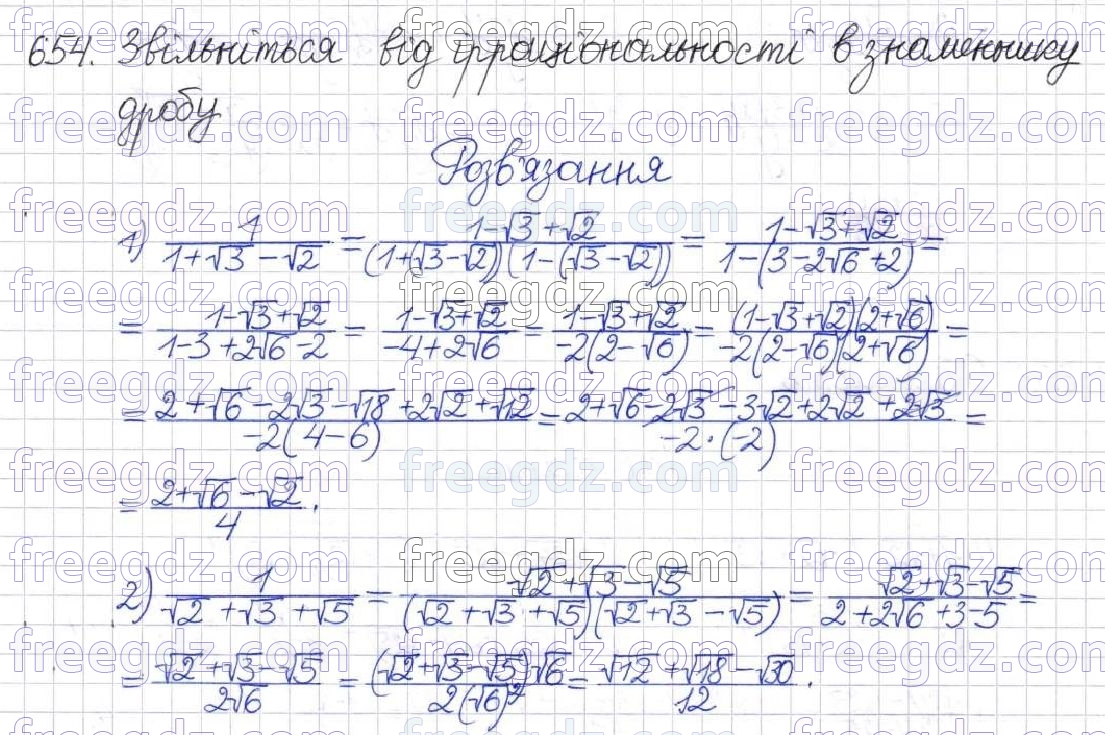 654. Звільніться від ірраціональності в знаменнику
дробу
Розв'язання
1) 1/(1+√3-√2) = (1-√3+√2)/((1+(√3-√2))(1-(√3-√2))) = (1-√3+√2)/(1-(3-2√6+2)) =
= (1-√3+√2)/(1-3+2√6-2) = (1-√3+√2)/(-4+2√6) = (1-√3+√2)/(-2(2-√6)) = ((1-√3+√2)(2+√6))/(-2(2-√6)(2+√6)) =
= (2+√6-2√3-√18+2√2+√12)/(-2(4-6)) = (2+√6-2√3-3√2+2√2+2√3)/(-2·(-2)) =
= (2+√6-√2)/4.
2) 1/(√2+√3+√5) = (√2+√3-√5)/((√2+√3+√5)(√2+√3-√5)) = (√2+√3-√5)/(2+2√6+3-5) =
= (√2+√3-√5)/(2√6) = ((√2+√3-√5)√6)/(2(√6)²) = (√12+√18-√30)/12.
freegdz.com